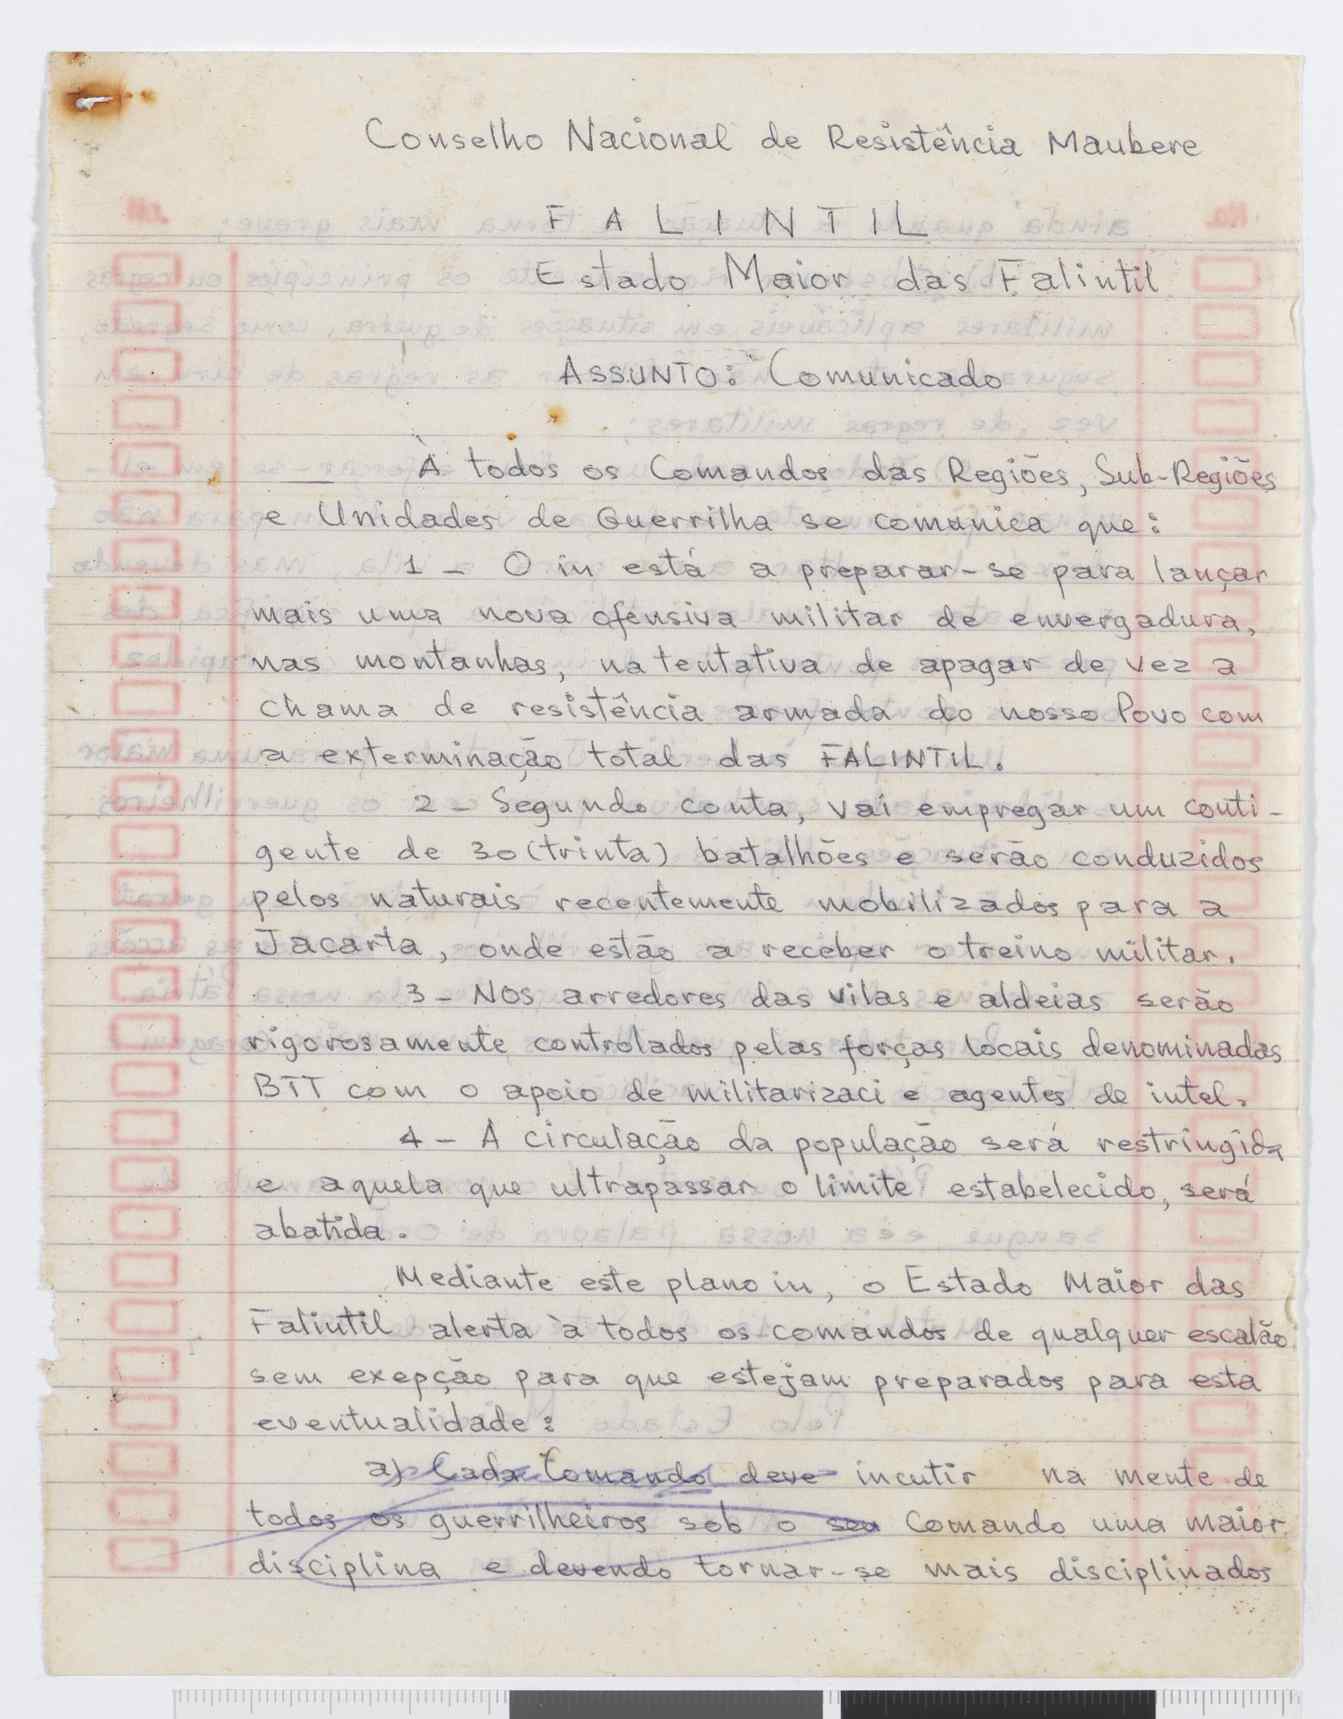 Conselho Nacional de Resistência Maubere
FALINTIL
Estado Maior das Falintil
ASSUNTO: Comunicado
À todos os Comandos das Regiões, Sub-Regiões
e Unidades de Guerrilha se comunica que:
1 - O in está a preparar-se para lançar
mais uma nova ofensiva militar de envergadura,
nas montanhas, na tentativa de apagar de vez a
chama de resistência armada do nosso Povo com
a exterminação total das FALINTIL.
2 - Segundo conta, vai empregar um conti-
gente de 30 (trinta) batalhões e serão conduzidos
pelos naturais recentemente mobilizados para a
Jacarta, onde estão a receber o treino militar.
3 - Nos arredores das vilas e aldeias serão
rigorosamente controlados pelas forças locais denominadas
BTT com o apoio de militarizaci e agentes de intel.
4 - A circulação da população será restringida
e aquela que ultrapassar o limite estabelecido, será
abatida.
Mediante este plano in, o Estado Maior das
Falintil alerta à todos os comandos de qualquer escalão
sem exepção para que estejam preparados para esta
eventualidade:
a) Cada Comando deve incutir na mente de
todos os guerrilheiros sob o seu Comando uma maior
disciplina e devendo tornar-se mais disciplinados